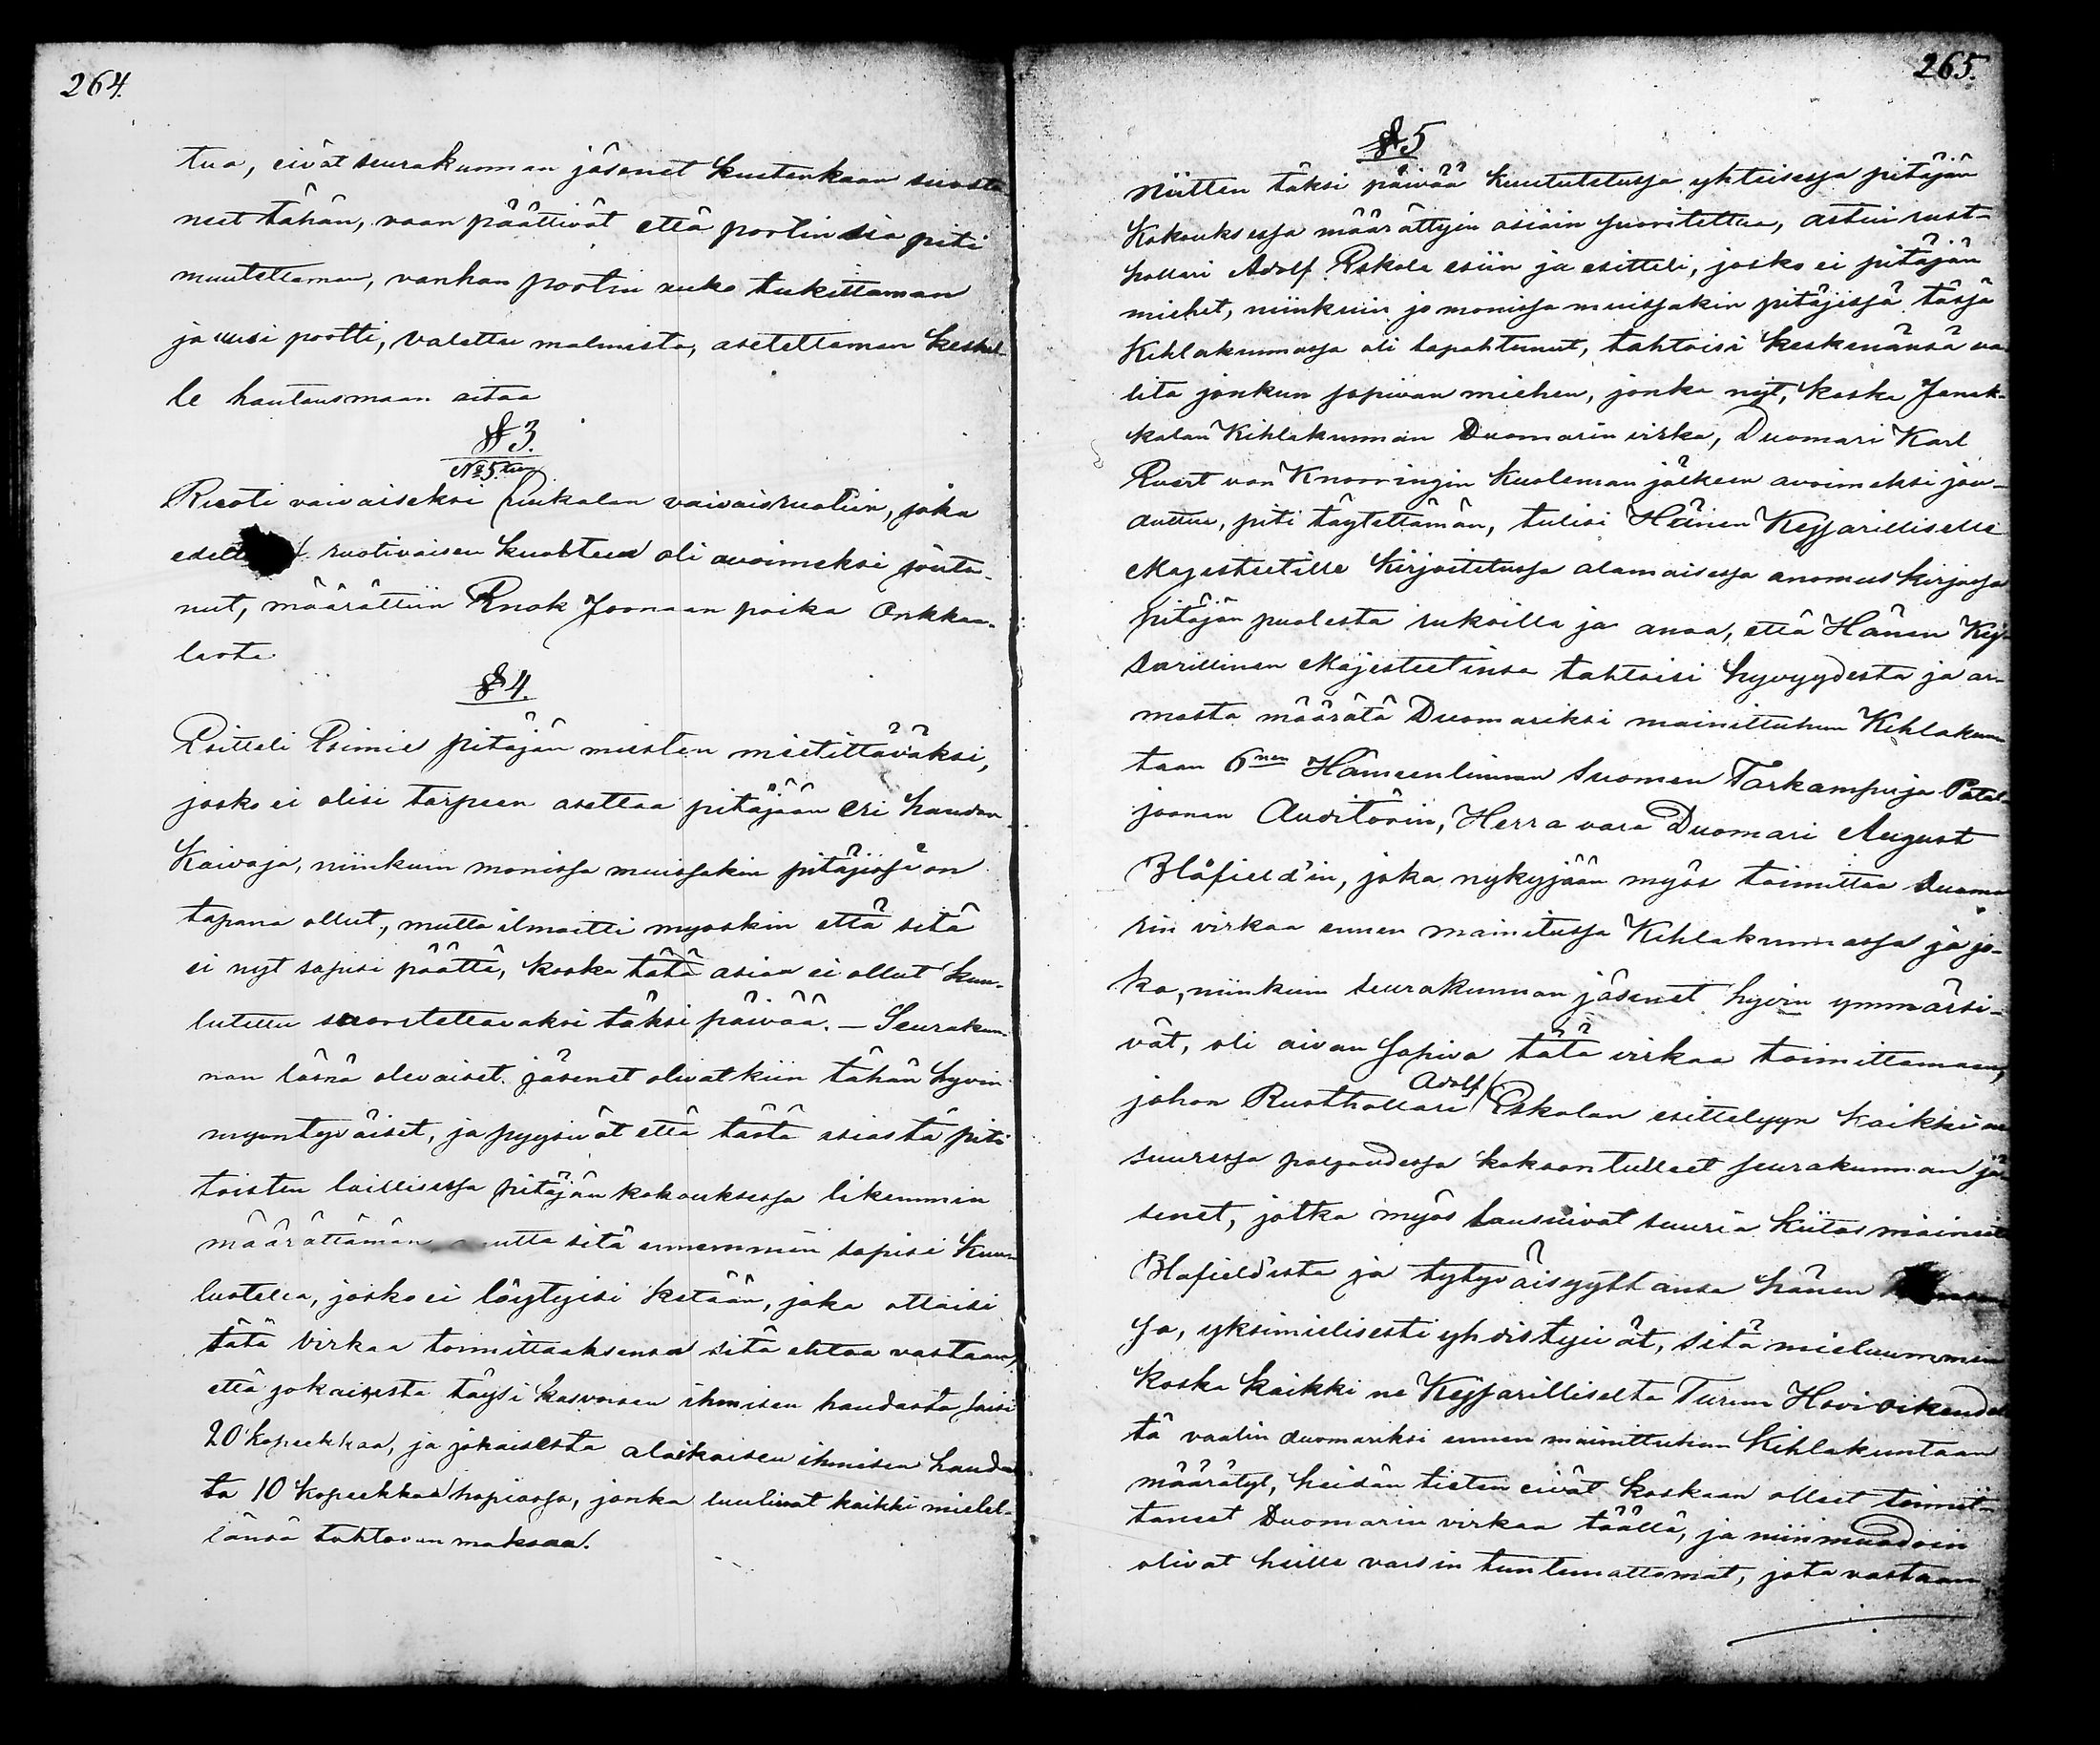 264.
tua, eivät seurakunnan jäsenet kuitenkaan suostu
neet tähän, vaan päättivät että portin sia piti
muutettaman, vanhan portin auko tukittaman
ja uusi portti, valettu malmista, asetettaman keskel
le hautausmaan aitaa
§ 3.
No 5:tuu
Ruoti vaivaiseksi Puikalan vaivaisruotiin, joka
ruotivaisen kuoltua oli avoimeksi joutu-
nut, määrättiin Enok Joonaan poika Onkkaa-
lasta
§ 4.
Esitteli Esimies pitäjän miesten mietittäväksi,
josko ei olisi tarpeen asettaa pitäjään eri haudan
Kaivaja, niinkuin monissa muissakin pitäjissä on
tapana ollut, mutta ilmoitti myöskin että sitä
ei nyt sopisi päättä, koska tätä asiaa ei ollut kuu-
lutettu suoritettavaksi täksi päivää. — Seurakun-
nan läsnä olevaiset jäsenet olivatkiin tähän hyvin
myöntyväiset, ja pyysivät että tästä asiasta piti
toisten laillisessa pitäjän kokouksessa likemmin
määrättämän mutta sitä ennemmin sopisi kuu-
lustella, josko ei löytyisi ketään, joka ottaisi
tätä virkaa toimittaaksensa sitä ehtoa vastaan,
että jokaisesta täysi kasvoisen ihmisen haudasta saisi
20 kopeekkaa, ja jokaisesta alaikäisen ihmisen haudas
ta 10 kopeekkaa hopiassa, jonka luulivat kaikki mielel-
länsä tahtovan maksaa.
265.
§ 5
Niitten täksi päivää kuulutetussa yhteisessä pitäjän
Kokouksessa määrättyin asiain suoritettua, astui rust-
hollari Adolf Eskola esiin ja esitteli, josko ei pitäjän
miehet, niinkuin jo monissa muissakin pitäjissä tässä
Kihlakunnassa oli tapahtunut, tahtoisi keskenänsä va
lita jonkun sopivan miehen, jonka nyt, koska Janak-
kalan Kihlakunnan Duomarin virka, Duomari Karl
Evert von Knorringin kuoleman jälkeen avoimeksi jou-
duttua, piti täytettämän, tulisi Hänen Keijsarilliselle
Majesteetille kirjoitetussa alamaisessa anomuskirjassa
pitäjän puolesta rukoilla ja anoa, että Hänen Keij
sarillinen Majesteetinsa tahtoisi hyvyydestä ja ar-
mosta määrätä Duomariksi mainittuhun Kihlakun
taan 6nen Hämeenlinnan Suomen Tarkampuja Patal-
joonan Auditörin, Herra vara Duomari August
Blåfield'in, joka nykyjään myös toimittaa duoma
rin virkaa ennen mainitussa Kihlakunnassa ja jo-
ka, niinkuin seurakunnan jäsenet hyvin ymmärsi-
vät, oli aivan sopiva tätä virkaa toimittamaan,
johon Rusthollari Adolf Eskolan esittelyyn kaikki ne
suuressa paljoudessa kokoontulleet seurakunnan jä
senet, jotka myös lausuivat suuria kiitos maineita
Blåfield'ista ja tytyväisyyttänsä hänen
sa, yksimielisesti yhdistyivät, sitä mieluummin
koska kaikki ne Keijsarilliselta Turun Hovioikeudel
tä vaalin duomariksi ennen mainittuhun Kihlakuntaan
määrätyt, heidän tieten eivät koskaan olleet toimit-
taneet Duomarin virkaa täällä, ja niinmuodoin
olivat heille varsin tuntemattomat, jota vastaan